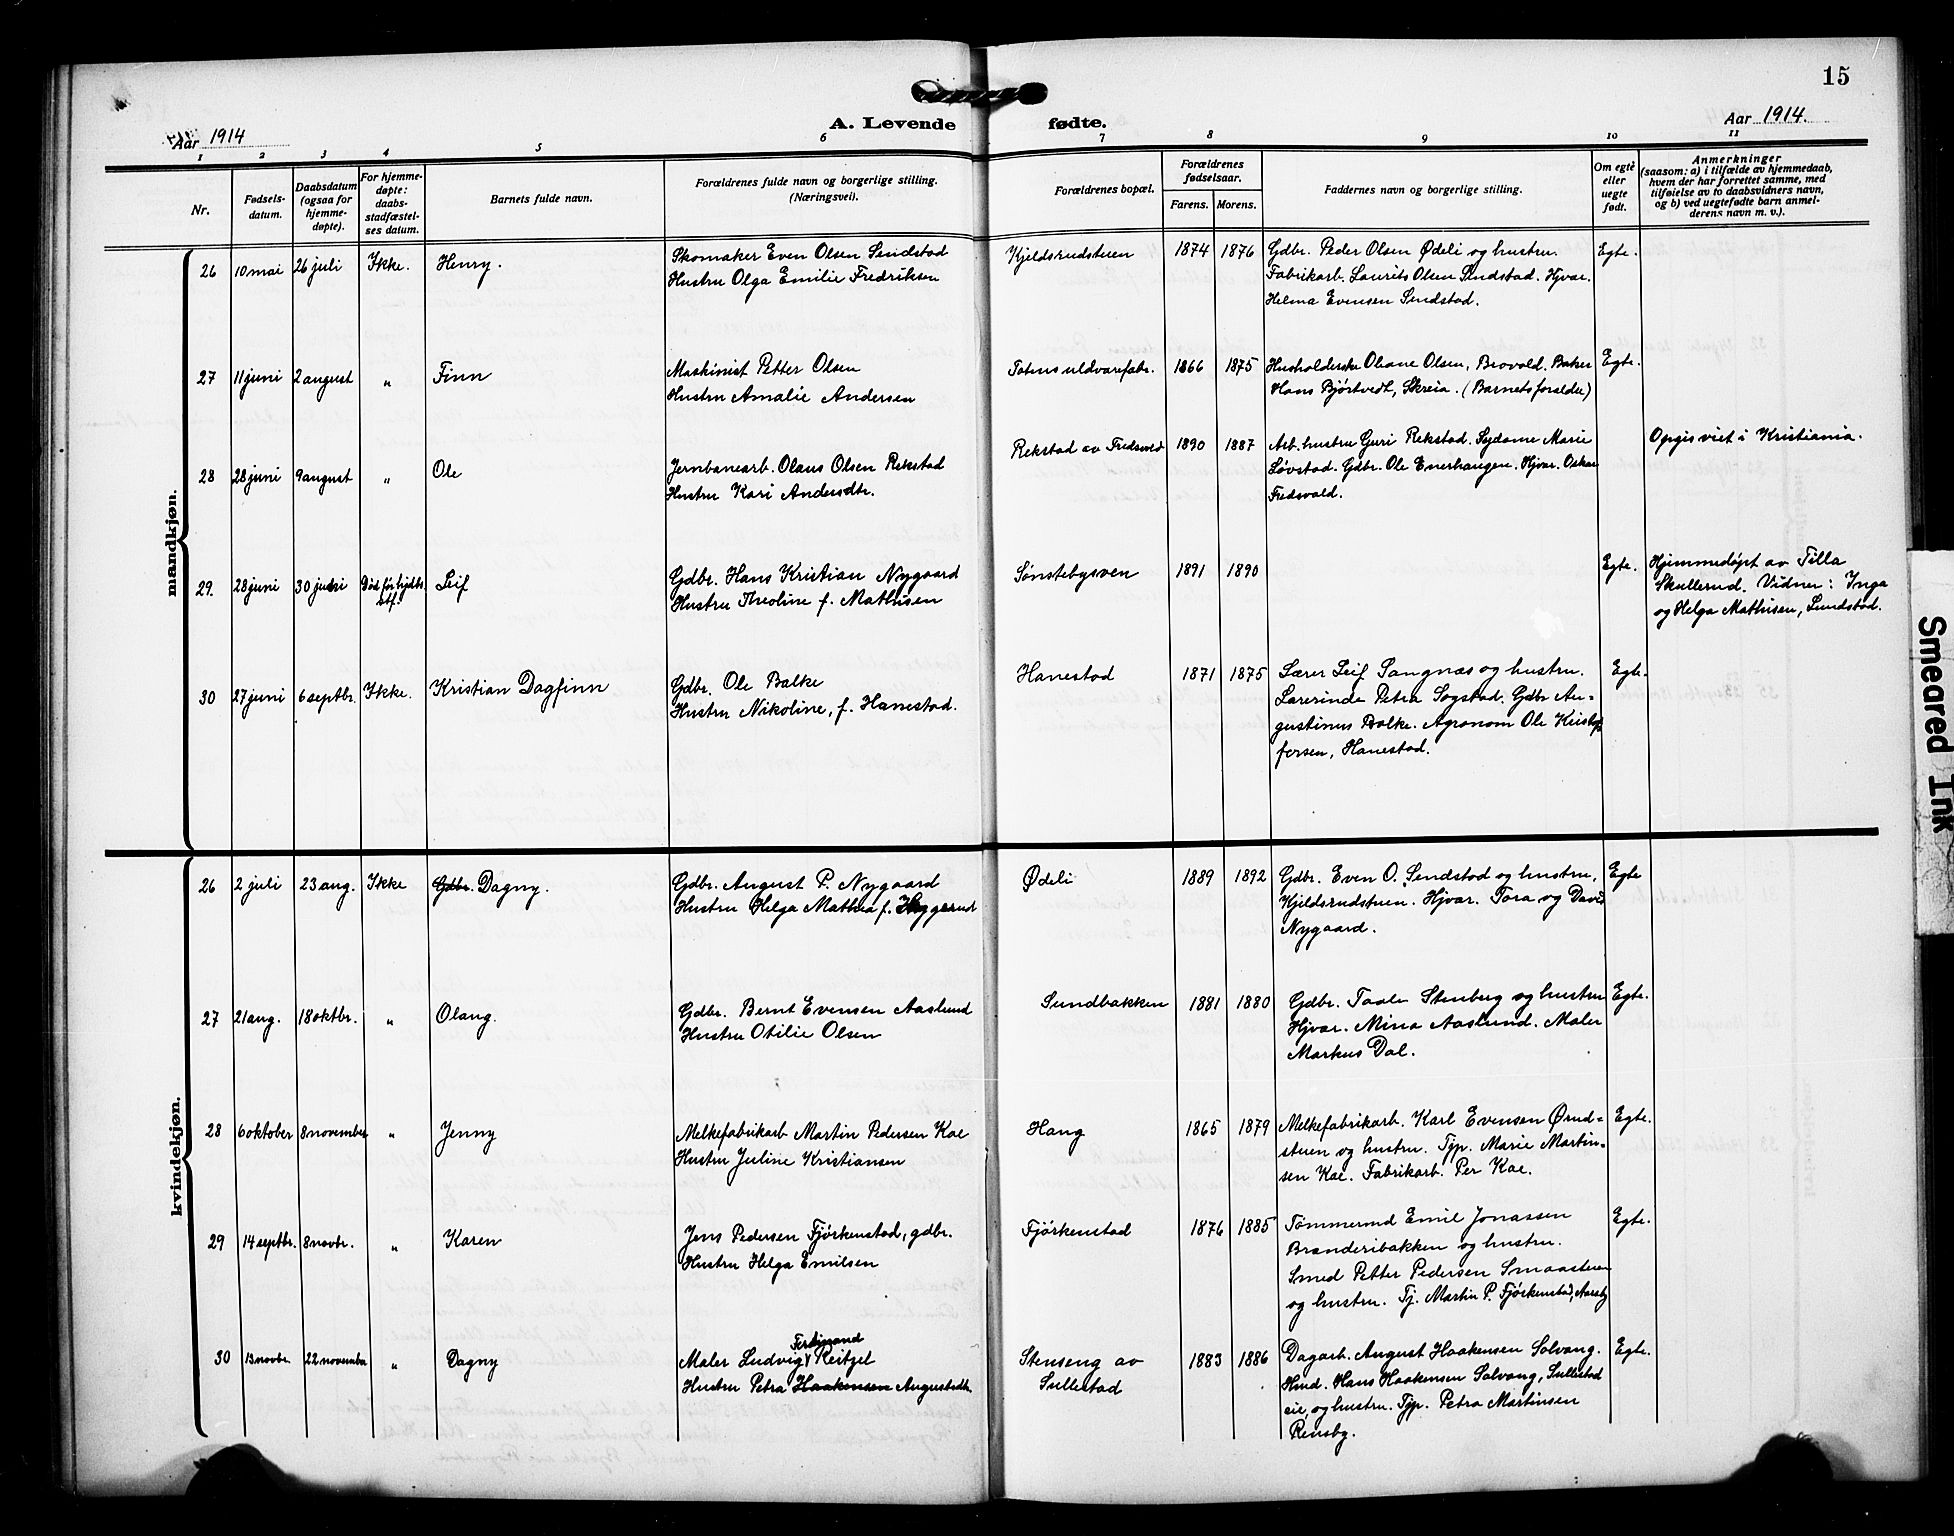 15
A. Levende fødte.
Aar 1914
Aar 1914.
1 2 3 4 5 6 7 8 9 10 11
Nr.
Fødsels-
datum.
Daabsdatum
(ogsaa for
hjemme-
døpte).
For hjemme-
døpte:
daabs-
stadfæstel-
ses datum.
Barnets fulde navn.
Forældrenes fulde navn og borgerlige stilling.
(Næringsvei).
Forældrenes bopæl.
Forældrenes
fødselsaar.
Farens. Morens.
Faddernes navn og borgerlige stilling.
Om egte
eller
uegte
født.
Anmerkninger
(saasom: a) i tilfælde av hjemmedaab,
hvem der har forrettet samme, med
tilføielse av to daabsvidners navn,
og b) ved uegtefødte barn anmel-
derens navn m. v.).
mandkjøn.
26 10 mai 26 juli Ikke. Henry.
Skomaker Even Olsen Sendstad
Hustru Olga Emilie Fredriksen
Kjeldsrudstuen 1874 1876
Gdbr. Peder Olsen Ødeli og hustru.
Fabrikarb. Laurits Olsen Sendstad. Hjvar.
Helma Evensen Sendstad.
Egte.
27 11 juni 2 august " Finn
Maskinist Petter Olsen
Hustru Amalie Andersen
Totens uldvarefabr. 1866 1875
Husholderske Oliane Olsen, Brovold. Baker
Hans Bjørtvedt, Skreia. (Barnets forældre)
Egte.
28 28 juni 9 august " Ole
Jernbanearb. Olaus Olsen Rekstad
Hustru Kari Andersdtr.
Rekstad av Fredsvold 1890 1887
Arb. hustru Guri Rekstad. Sydame Marie
Løvstad. Gdbr. Ole Enerhaugen. Hjvar. Oskar
Fredsvold.
Opgis viet i Kristiania.
29. 28 juni 30 juni Død før lydts. Leif
stf.
Gdbr. Hans Kristian Nygaard
Hustru Theoline f. Mathisen
Sønstebysven 1891 1890
Egte.
Hjemmedøpt av Tilla
Skullerud. Vidner: Inga
og Helga Mathisen, Sundstad.
30 27 juni 6 septbr. Ikke. Kristian Dagfinn
Gdbr. Ole Balke
Hustru Nikoline, f. Hanestad.
Hanestad 1871 1875
Lærer Leif Sangnæs og hustru.
Lærerinde Petra Sogstad. Gdbr Au-
gustinus Balke. Agronom Ole Kristof
fersen, Hanestad.
Egte.
kvindekjøn.
26 2 juli 23 aug. Ikke Gdbr. Dagny.
Gdbr. August P. Nygaard
Hustru Helga Mathea f.
Ødeli 1889 1892
Gdbr. Even O. Sendstad og hustru,
Kjeldsrudstuen. Hjvar. Tora og David
Nygaard.
Egte
27 21 aug. 18 oktbr. " Olaug.
Gdbr. Bernt Evensen Aaslund
Hustru Otilie Olsen
Sundbakken 1881 1880
Gdbr. Taale Stenberg og hustru
Hjvar. Mina Aaslund. Maler
Markus Dal.
Egte.
28 6 oktober 8 november " Jenny
Melkefabrikarb Martin Pedersen Kae
Hustru Juline Kristiansen
Haug 1865 1879
Melkefabrikarb. Karl Evensen Ørud-
stuen og hustru. Tjp. Marie Martin-
sen Kae. Fabrikarb. Per Kae.
Egte.
29 14 septbr. 8 novbr. " Karen
Jens Pedersen Fjørkenstad, gdbr.
Hustru Helga Emilsen
Fjørkenstad 1876 1885
Tømmermd Emil Jonassen
Branderibakken og hustru.
Smed Petter Pedersen Smaastuen
og hustru. Tj. Martin P. Fjørkenstad, Aarsby
Egte.
30 13 novbr. 22 november " Dagny
Ferdinand
Maler Ludvig Reitzel
Hustru Petra Haakensen Augustsdtr.
Stenseng av
Sullestad
1883 1886
Dagarb. August Haakensen Solvang.
Hmd. Hans Haakensen Solvang, Sullestad
eie, og hustru. Tjp. Petra Martinsen
Rensby.
Egte.
Smeared Ink